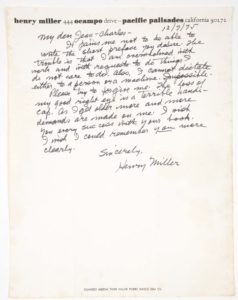 henry miller 444 ocampo drive – pacific palisades california 90272
12/9/75
My dear Jean-Charles—
It pains me not to be able to
write the short preface you desire. The
trouble is that I am overwhelmed with
work and with requests to do things I
do not care to do. Also, I cannot dictate
either to a person or a machine. Impossible.
Please try to forgive me. The loss of
my good right eye is a terrible handi-
cap. As I get older more and more
demands are made on me. I wish
you every success with your book.
I wish I could remember you more
clearly.
Sincerely,
Henry Miller